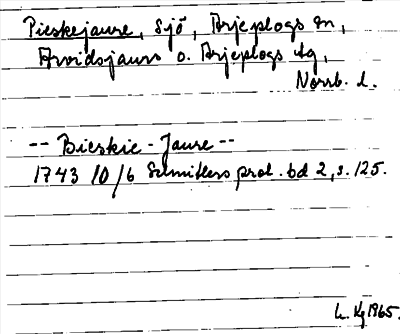 Pieskejaure, sjö, Arjeplogs sn,
Arvidsjaurs o. Arjeplogs tg,
Norrb. l.
-- Bieskie-Jaure --
1743 10/6 Schnitlers prot. bd 2, s. 125.
1965.